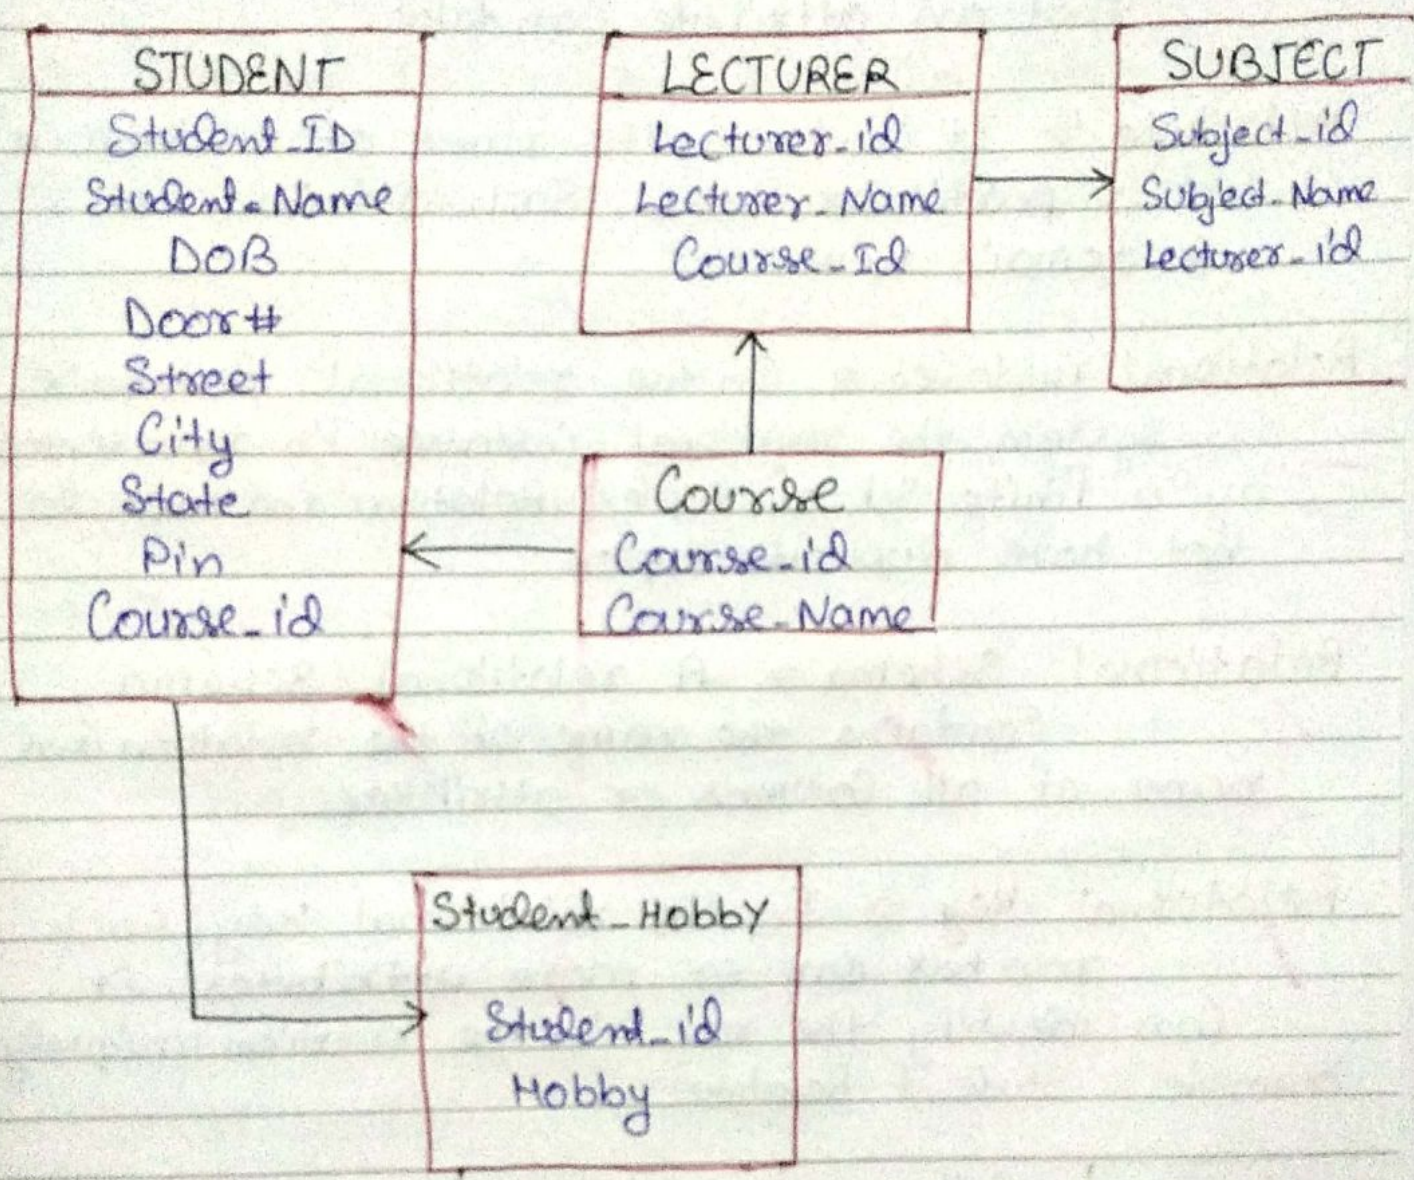 STUDENT
Student_ID
Student_Name
DOB
Door#
Street
City
State
Pin
Course_id
LECTURER
Lecturer_id
Lecturer_Name
Course_Id
SUBJECT
Subject_id
Subject_Name
Lecturer_id
Course
Course_id
Course_Name
Student_Hobby
Student_id
Hobby